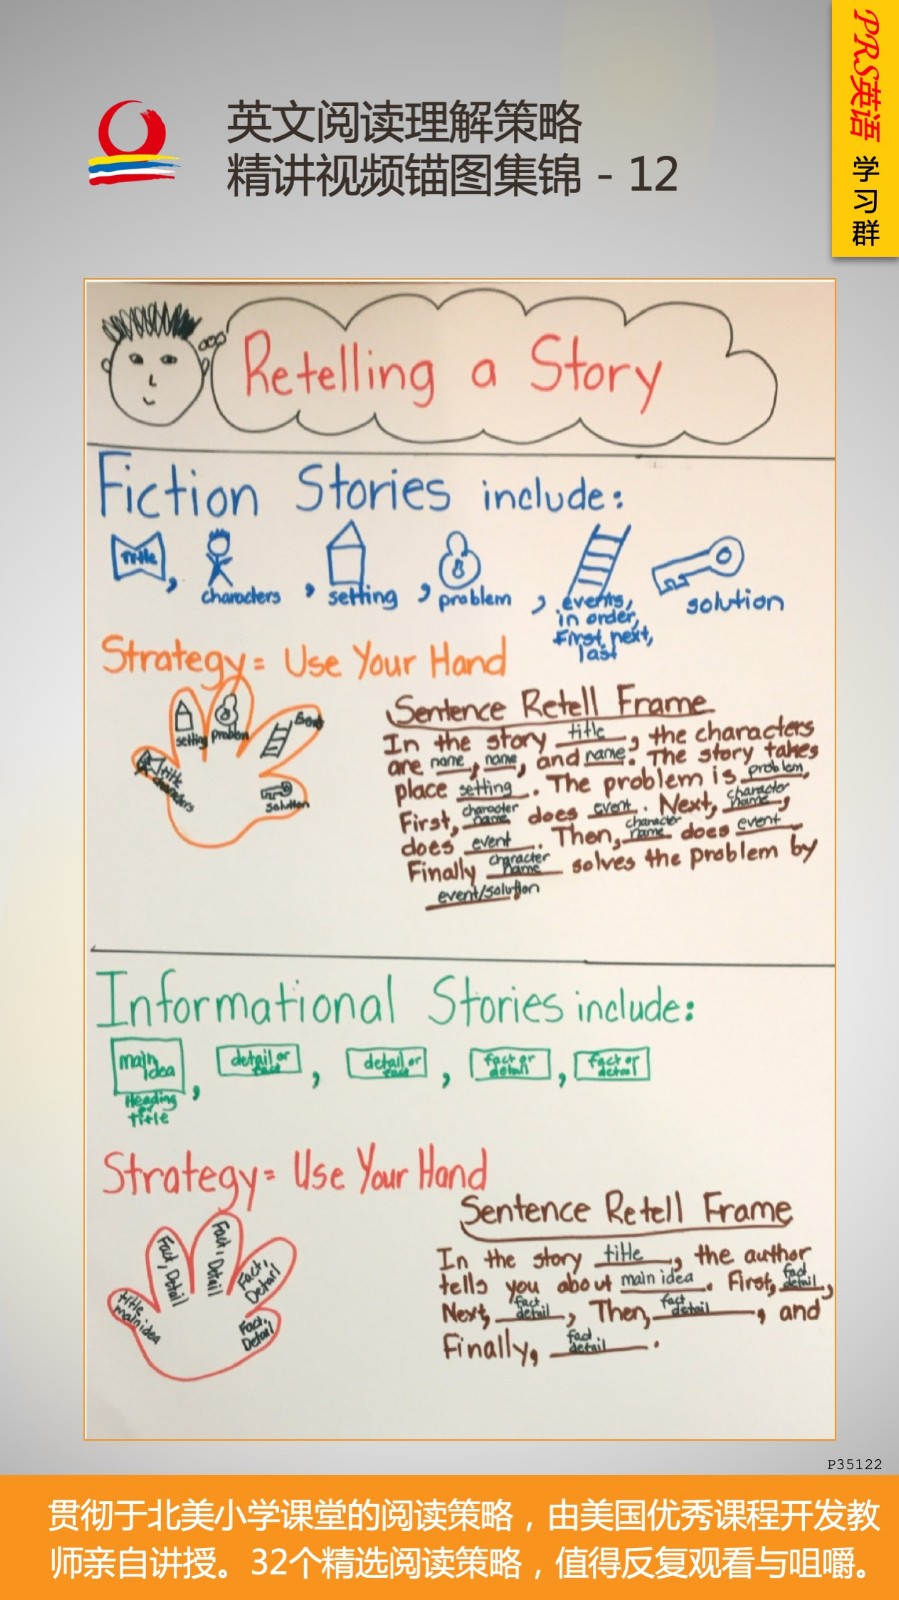 PRS英语 学习群
英文阅读理解策略
精讲视频锚图集锦 - 12
Retelling a Story
Fiction Stories include:
Title, characters, setting, problem, events, in order, First, next, last solution
Strategy = Use Your Hand
title characters
setting
problem
solution
Sentence Retell Frame
In the story title, the characters
are name, name, and name. The story takes
place setting. The problem is problem.
First, character name does event. Next, character name,
does event. Then, character name does event
Finally character name solves the problem by
event/solution
Informational Stories include:
main idea, detail or fact, detail or fact, fact or detail, fact or detail
Heading or title
Strategy = Use Your Hand
title, main idea
Fact, Detail
Fact, Detail
Fact, Detail
Fact, Detail
Sentence Retell Frame
In the story title, the author
tells you about main idea. First, fact detail,
Next, fact detail, Then, fact detail, and
Finally, fact detail.
P35122
贯彻于北美小学课堂的阅读策略，由美国优秀课程开发教
师亲自讲授。32个精选阅读策略，值得反复观看与咀嚼。